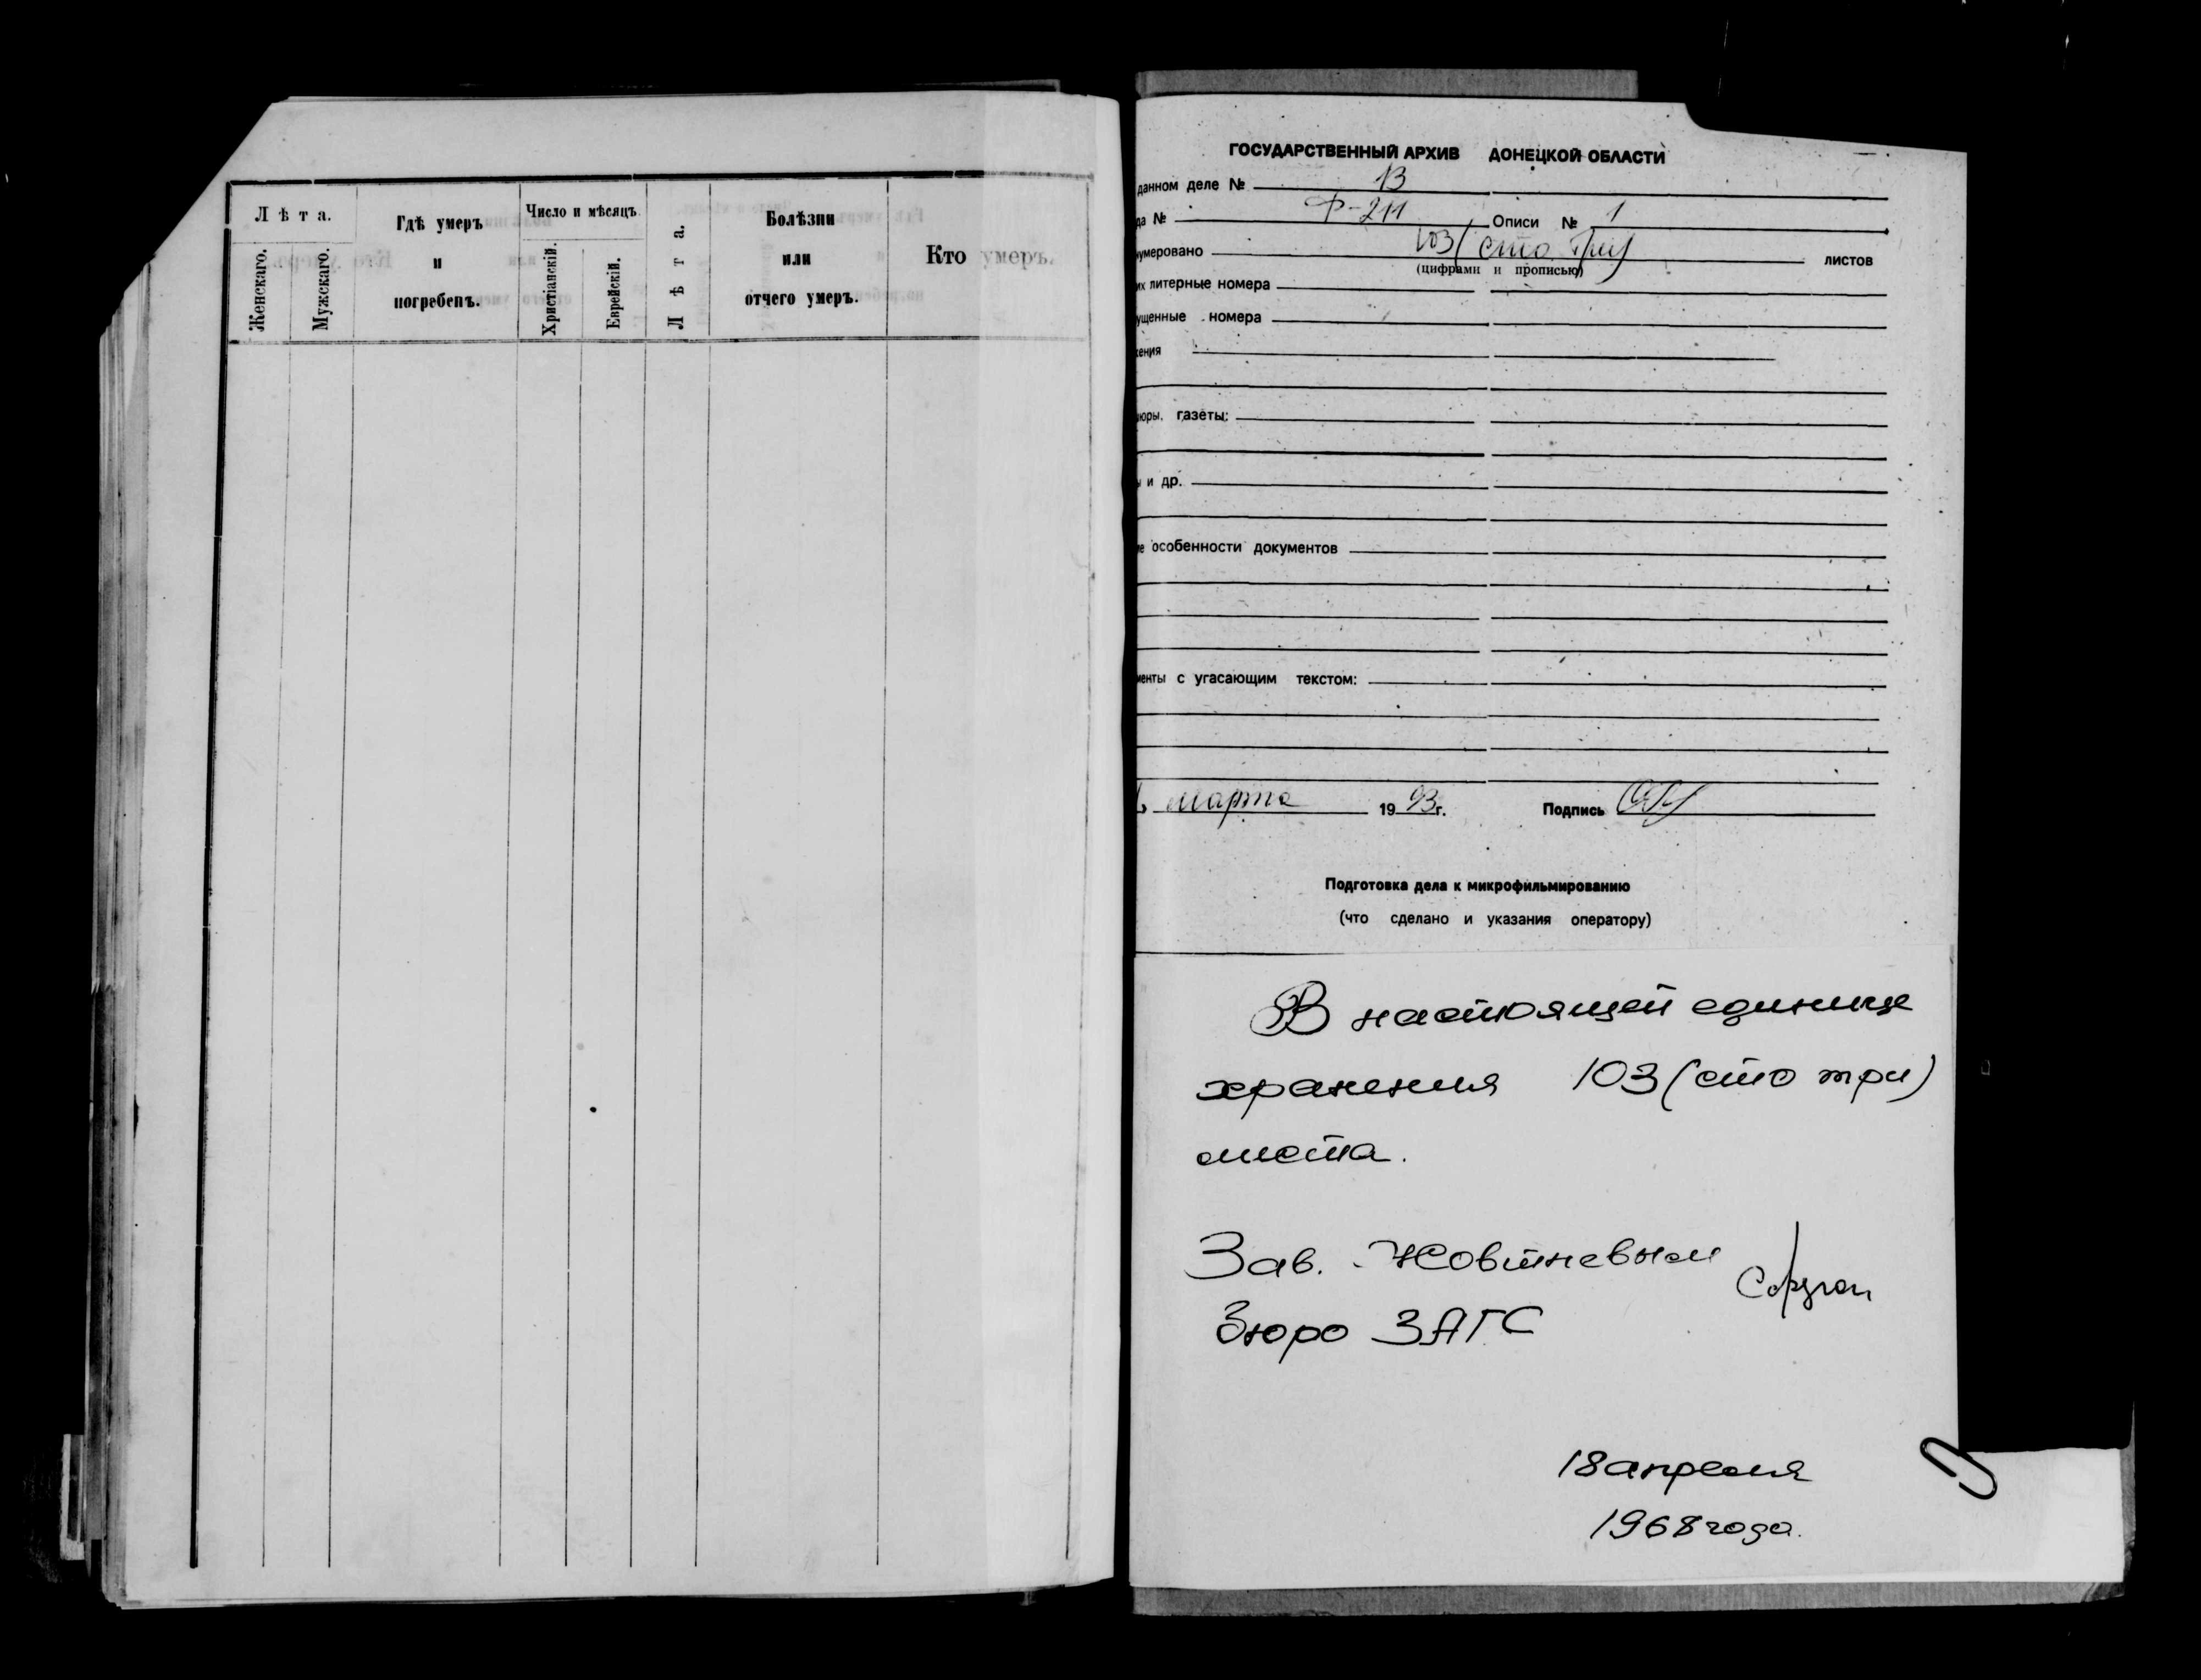 Лѣта.
Женскаго.
Мужскаго.
Гдѣ умеръ
и
погребенъ.
Число и мѣсяцъ.
Христіанскій.
Еврейскій.
Лѣта.
Болѣзни
или
отчего умеръ.
Кто умеръ.
ГОСУДАРСТВЕННЫЙ АРХИВ ДОНЕЦКОЙ ОБЛАСТИ
данном деле № 13
да № Ф-211 Описи № 1
нумеровано 103 (сто три) листов
(цифрами и прописью)
их литерные номера
ущенные номера
жения
юры, газеты:
ы и др.
е особенности документов
менты с угасающим текстом:
марта 1993г. Подпись
Подготовка дела к микрофильмированию
(что сделано и указания оператору)
В настоящей единице
хранения 103 (сто три)
листа.
Зав. Жовтневым
Бюро ЗАГС
18 апреля
1968 года.